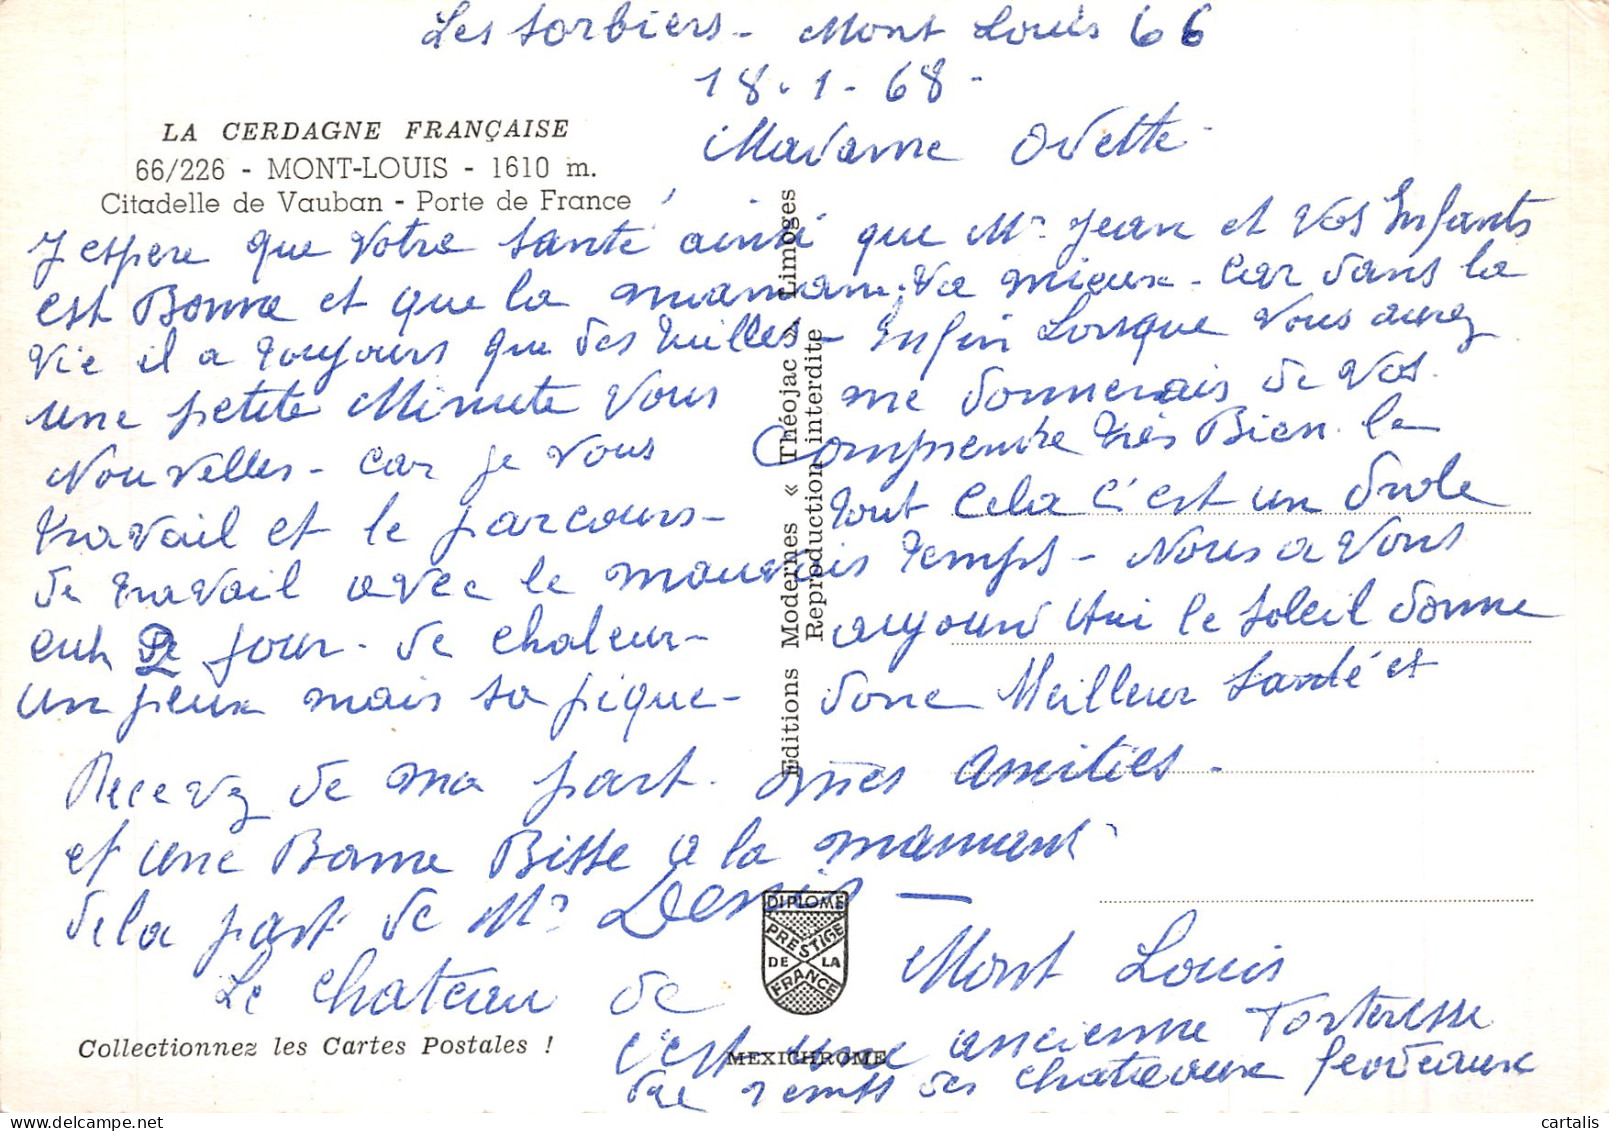 Les Sorbiers - Mont Louis 66
18.1.68 -
Madame Odette
LA CERDAGNE FRANÇAISE
66/226 - MONT-LOUIS - 1610 m.
Citadelle de Vauban - Porte de France
J espere que votre santé ainsi que Mr Jean et vos Enfants
est Bonne et que la maman va mieux - Car dans la
vie il a toujours que des tuilles - Enfin Lorsque vous aurez
une petite Minute vous me donnerais de vos
Nouvelles - car je vous Comprendre très Bien le
travail et le parcours - tout cela c'est un drole
de travail avec le mauvais temps - Nous avons
euh 2 jour de chaleur - aujourd hui le soleil donne
un peux mais sa pique - donc Meilleur Santé et
Recevez de ma part mes amitiés -
et une Bonne Bisse a la maman
de la part de Mr Denis -
Le chateau de Mont Louis
c'est une ancienne Forteresse
du temps des chateaux feodeaux
Editions Modernes « Théojac », Limoges
Reproduction interdite
DIPLOME
PRESTIGE
DE LA
FRANCE
MEXICHROME
Collectionnez les Cartes Postales !
cartalis